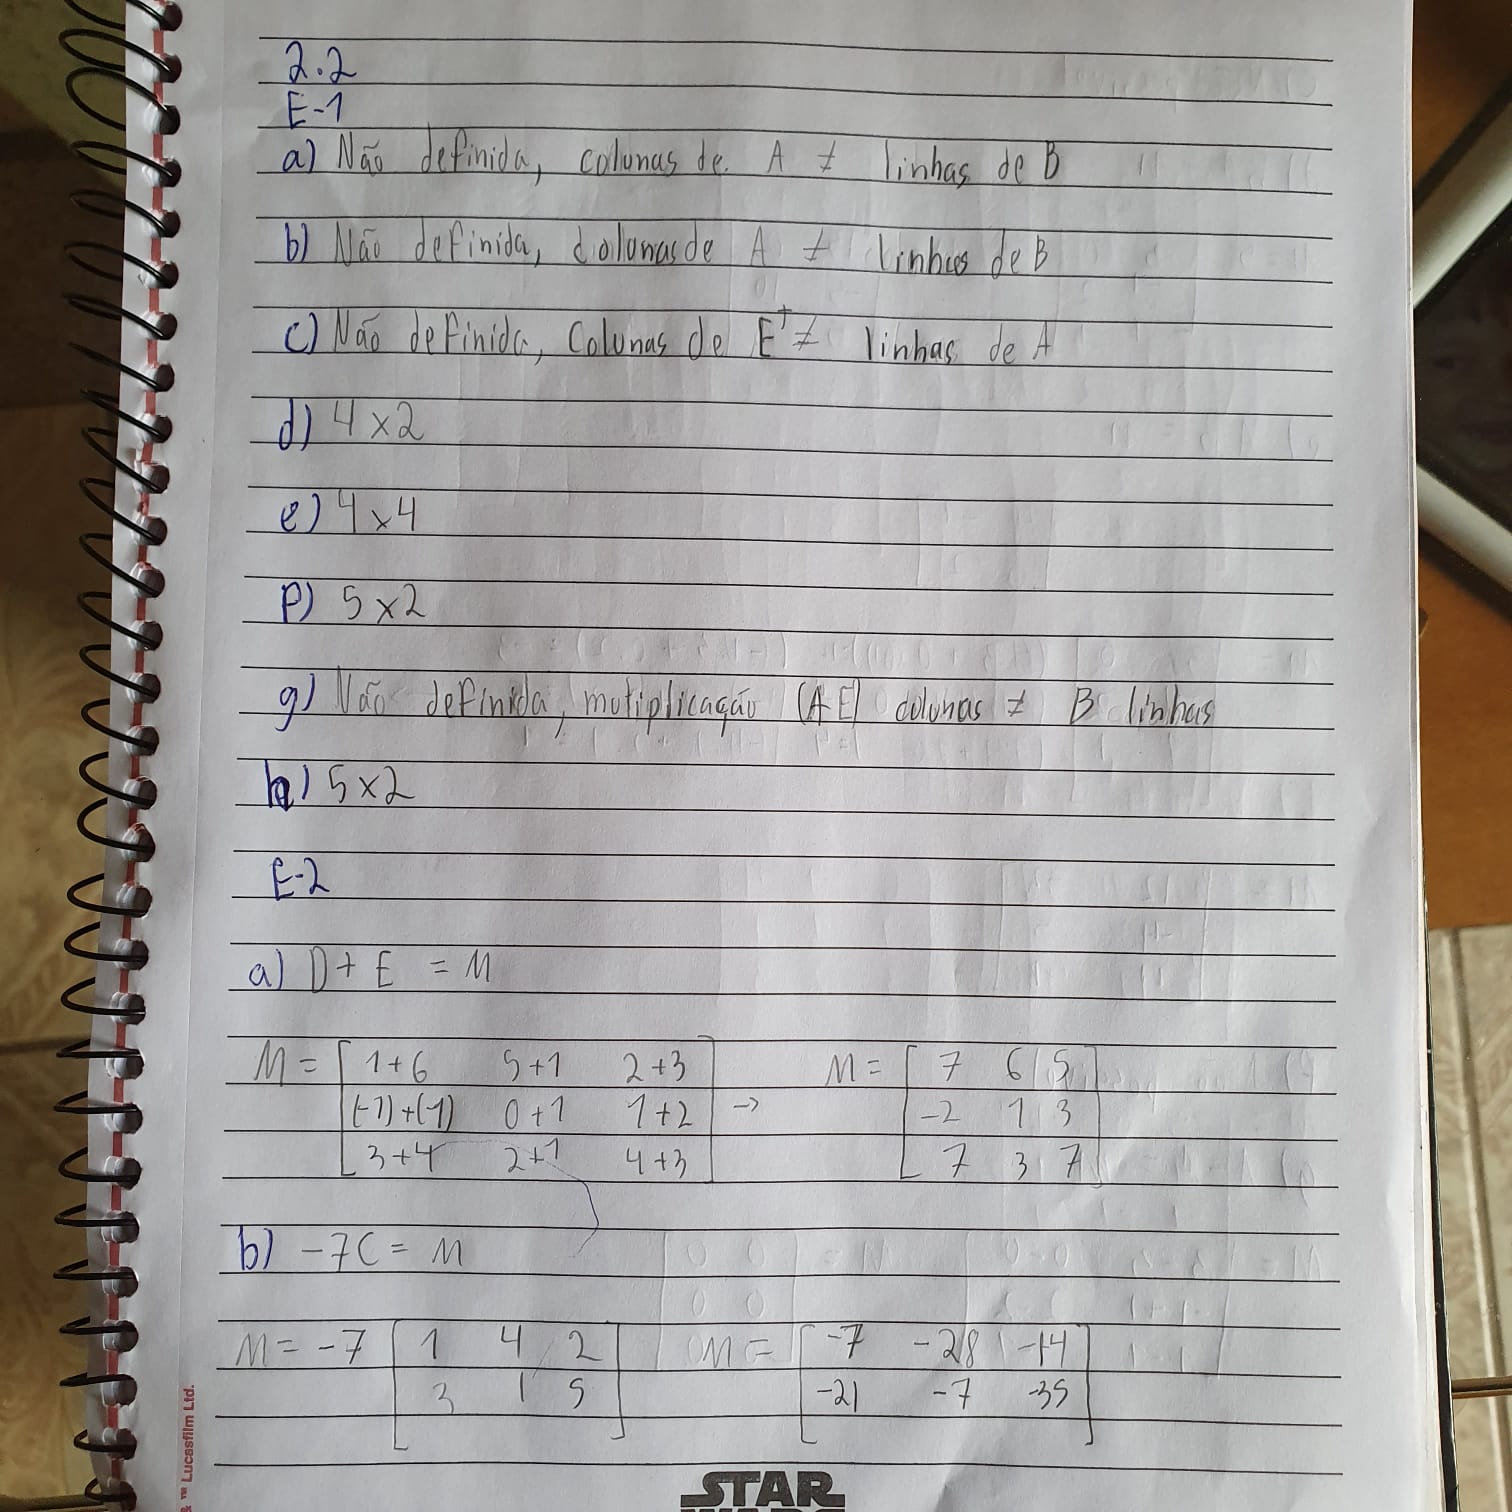 2.2
E-1
a) Não definida, colunas de A ≠ linhas de B
b) Não definida, colunas de A ≠ linhas de B
c) Não definida, Colunas de Eᵗ ≠ linhas de A
d) 4 x 2
e) 4 x 4
f) 5 x 2
g) Não definida, mutiplicação (AE) colunas ≠ B linhas
h) 5 x 2
E-2
a) D + E = M
M = [ 1+6 5+1 2+3 M = [ 7 6 5 ]
(-1)+(-1) 0+1 1+2 -> -2 1 3
3+4 2+1 4+3 ] 7 3 7
b) -7C = M
M = -7 [ 1 4 2 ] M = [ -7 -28 -14 ]
3 1 5 -21 -7 -35
& ™ Lucasfilm Ltd.
STAR